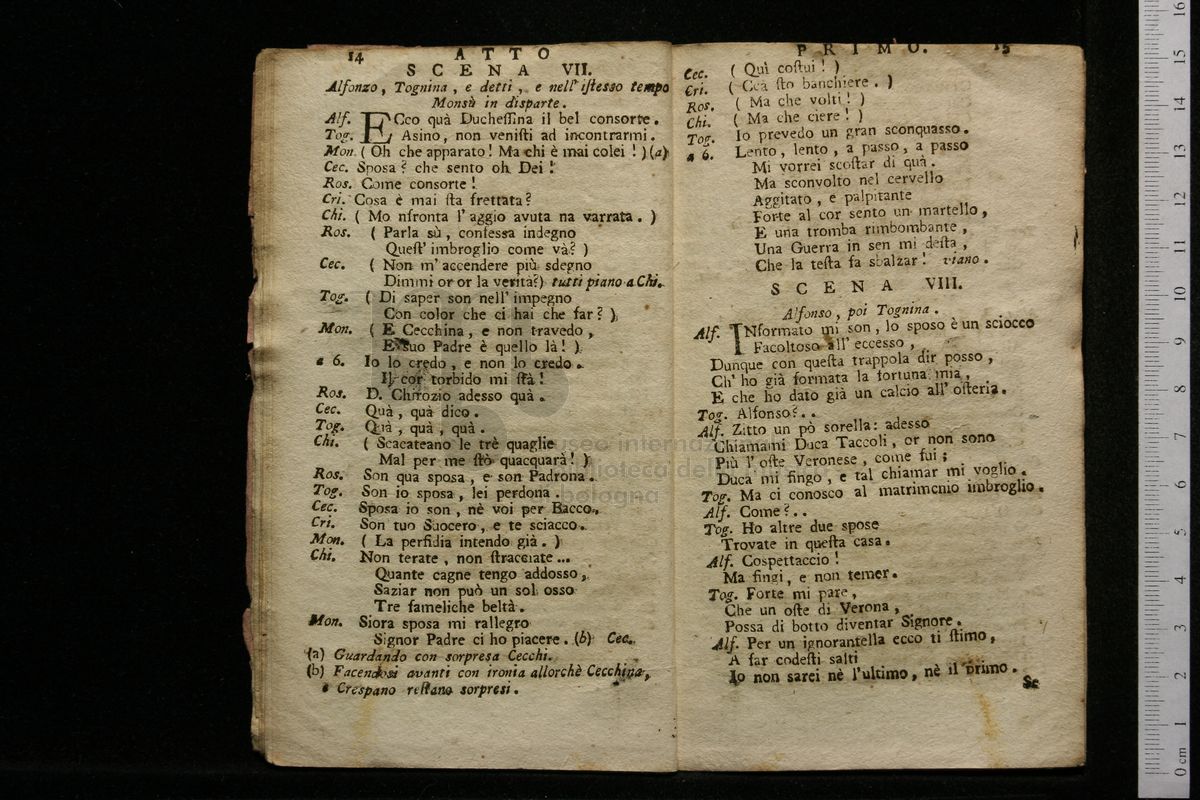 14 ATTO
SCENA VII.
Alfonzo, Tognina, e detti, e nell'iſteſſo tempo
Monsù in diſparte.
Alf. ECco quà Ducheſſina il bel conſorte.
Tog. Aſino, non veniſti ad incontrarmi.
Mon. ( Oh che apparato! Ma chi è mai colei! ) (a)
Cec. Spoſa? che sento oh Dei!
Ros. Come conſorte!
Cri. Coſa è mai ſta frettata?
Chi. ( Mo nfronta l'aggio avuta na varrata. )
Ros. ( Parla sù, confeſſa indegno
Queſt' imbroglio come và? )
Cec. ( Non m'accendere più sdegno
Dimmi or or la verità?) tutti piano a Chi.
Tog. ( Di saper son nell'impegno
Con color che ci hai che far? )
Mon. ( E Cecchina, e non travedo,
E suo Padre è quello là! )
a 6. Io lo credo, e non lo credo.
Il cor torbido mi ſtà!
Ros. D. Chirozio adesso quà.
Cec. Quà, quà dico.
Tog. Quà, quà, quà.
Chi. ( Scacateano le trè quaglie
Mal per me ſtò quacquarà! )
Ros. Son qua sposa, e son Padrona.
Tog. Son io sposa, lei perdona.
Cec. Sposa io son, nè voi per Bacco.
Cri. Son tuo Suocero, e te sciacco.
Mon. ( La perfidia intendo già. )
Chi. Non terate, non ſtracciate...
Quante cagne tengo addosso,
Saziar non può un sol osso
Tre fameliche beltà.
Mon. Siora sposa mi rallegro
Signor Padre ci ho piacere. (b) Cec.
(a) Guardando con sorpresa Cecchi.
(b) Facendosi avanti con ironia allorchè Cecchina,
e Crespano reſtano sorpresi.
PRIMO. 15
Cec. ( Quì coſtui! )
Cri. ( Ccà ſto banchiere. )
Ros. ( Ma che volti! )
Chi. ( Ma che ciere! )
Tog. Io prevedo un gran sconquasso.
a 6. Lento, lento, a passo, a passo
Mi vorrei scoſtar di quà.
Ma sconvolto nel cervello
Aggitato, e palpitante
Forte al cor sento un martello,
E una tromba rimbombante,
Una Guerra in sen mi deſta,
Che la teſta fa sbalzar! viano.
SCENA VIII.
Alfonso, poi Tognina.
Alf. INformato mi son, lo sposo è un sciocco
Facoltoso all' eccesso,
Dunque con queſta trappola dir posso,
Ch' ho già formata la fortuna mia,
E che ho dato già un calcio all' oſteria.
Tog. Alfonso?..
Alf. Zitto un pò sorella: adesso
Chiamami Duca Taccoli, or non sono
Più l' oſte Veronese, come fui;
Duca mi fingo, e tal chiamar mi voglio.
Tog. Ma ci conosco al matrimonio imbroglio.
Alf. Come?..
Tog. Ho altre due spose
Trovate in queſta casa.
Alf. Cospettaccio!
Ma fingi, e non temer.
Tog. Forte mi pare,
Che un oſte di Verona,
Possa di botto diventar Signore.
Alf. Per un ignorantella ecco ti ſtimo,
A far codeſti salti
Io non sarei nè l'ultimo, nè il primo.
Sc